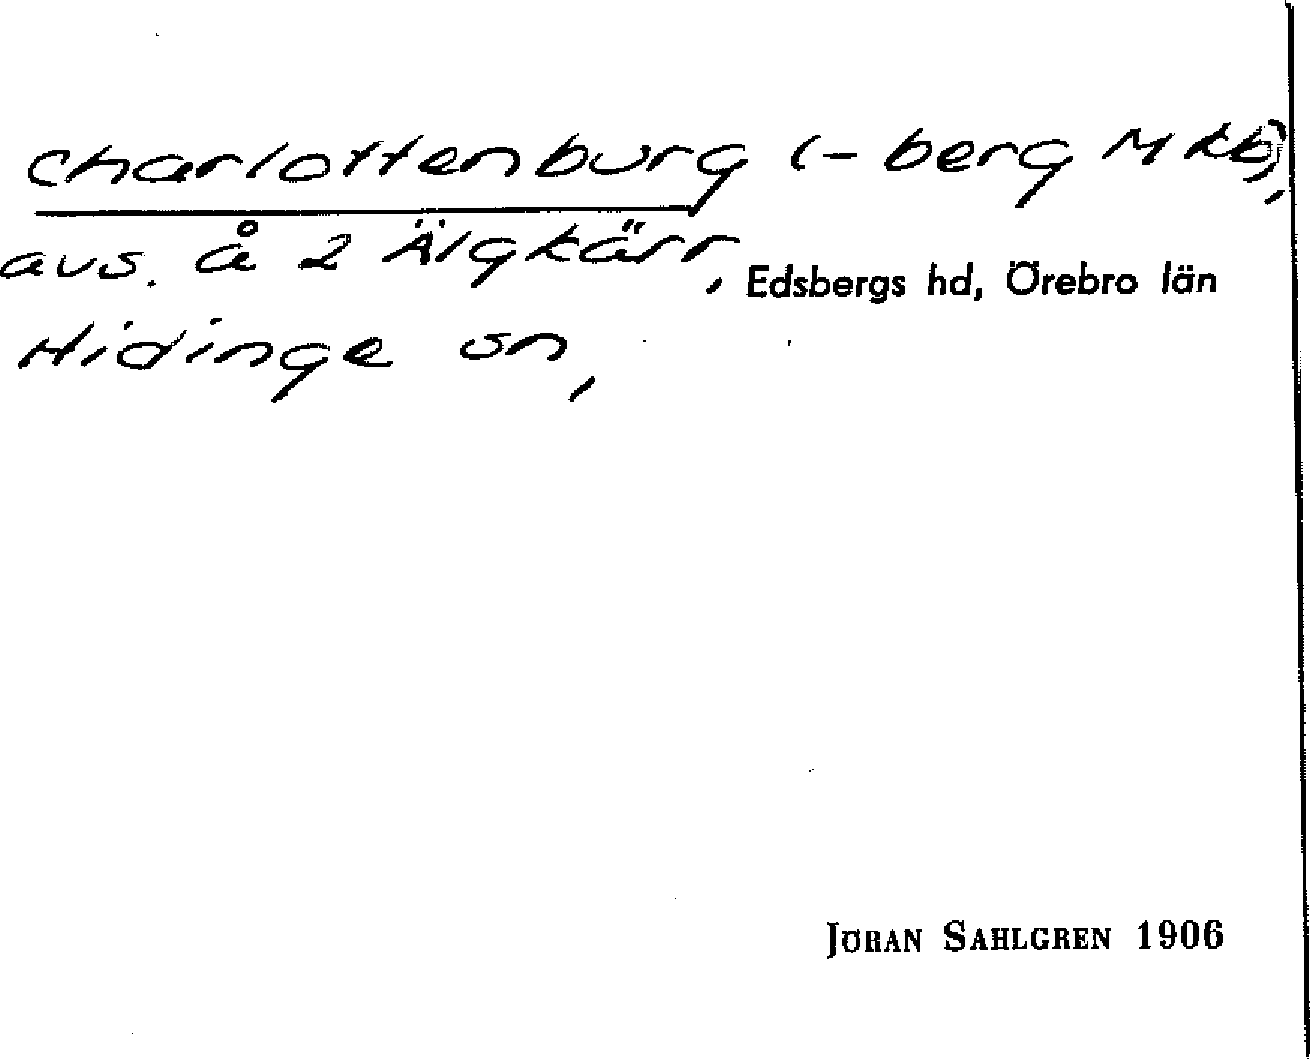 Charlottenburg (-berg M kb),
avs. å 2 Älgkärr, Edsbergs hd, Örebro län
Hidinge sn,
JÖRAN SAHLGREN 1906